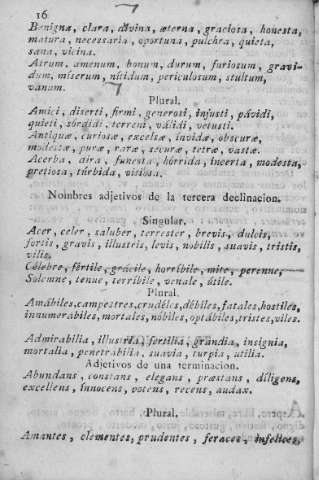 16
Benigna, clara, divina, æterna, graciosa, honesta,
matura, necessaria, oportuna, pulchra, quieta,
sana, vicina.
Atrum, amenum, bonum, durum, furiosum, gravi-
dum, miserum, nítidum, periculosum, stultum,
vanum.
Plural.
Amici, diserti, firmi, generosi, injusti, pávidi,
quieti, sórdidi, terreni, válidi, vetusti.
Antiquæ, curiosæ, excelsæ, invidæ, obscuræ,
modestæ, puræ, raræ, securæ, tetræ, vastæ.
Acerba, dira, funesta, hórrida, incerta, modesta,
pretiosa, túrbida, vitiosa.
Nombres adjetivos de la tercera declinacion.
Singular.
Acer, celer, saluber, terrester, brevis, dulcis,
fortis, gravis, illustris, levis, nobilis, suavis, tristis,
vilis.
Célebre, fértile, grácile, horríbile, mite, perenne,
Solemne, tenue, terríbile, venale, útile.
Plural.
Amábiles, campestres, crudéles, débiles, fatales, hostiles,
innumerabiles, mortales, nóbiles, optábiles, tristes, viles.
Admirabilia, illustria, fertilia, grandia, insignia,
mortalia, penetrabilia, suavia, turpia, utilia.
Adjetivos de una terminacion.
Abundans, constans, elegans, præstans, díligens,
excellens, innocens, potens, recens, audax.
Plural.
Amantes, clementes, prudentes, feraces, infelices,